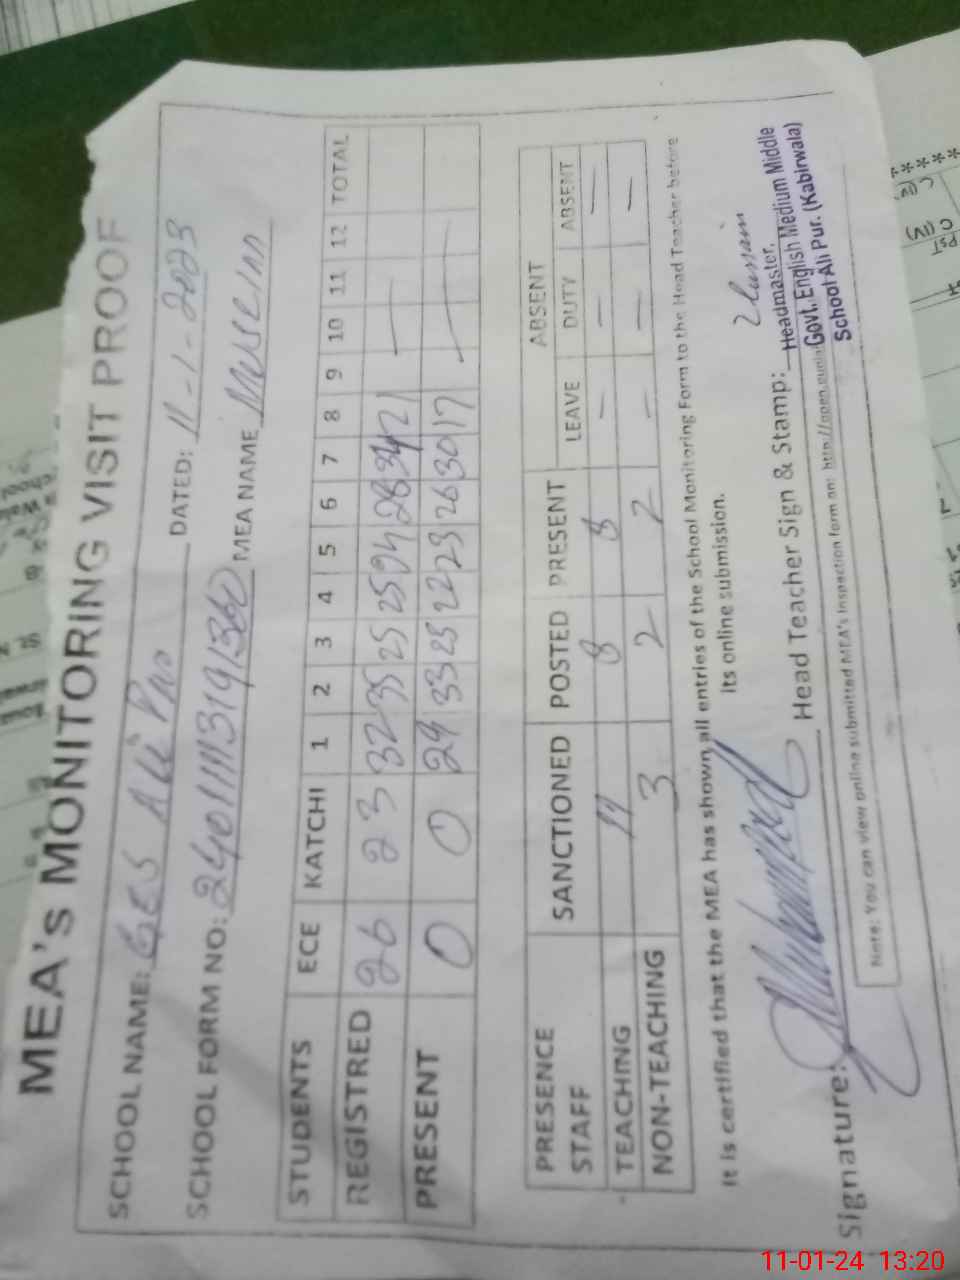 MEA's MONITORING VISIT PROOF
SCHOOL NAME: GES Ali Pur DATED: 11-1-2023
SCHOOL FORM NO: MEA NAME
STUDENTS ECE KATCHI 1 2 3 4 5 6 7 8 9 10 11 12 TOTAL
REGISTRED 26 23 32 35 25 25 24 28 34 21 —
PRESENT 0 0 29 33 25 22 23 26 30 17 —
ABSENT
PRESENCE STAFF SANCTIONED POSTED PRESENT LEAVE DUTY ABSENT
TEACHING 11 8 8 — — —
NON-TEACHING 3 2 2 — — —
It is certified that the MEA has shown all entries of the School Monitoring Form to the Head Teacher before
its online submission.
Signature: Head Teacher Sign & Stamp: Headmaster,
Govt. English Medium Middle
School Ali Pur. (Kabirwala)
Note: You can view online submitted MEA's Inspection form on: http://open.punja
11-01-24 13:20